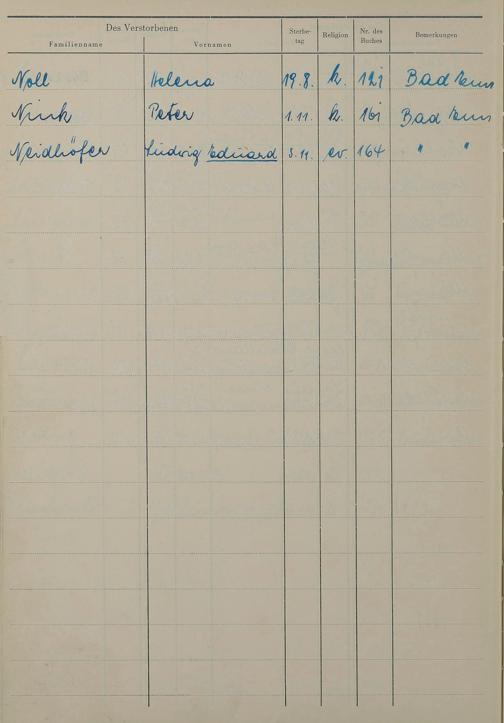 Des Verstorbenen
Familienname Vornamen Sterbe-tag Religion Nr. des Buches Bemerkungen
Noll Helena 19.8. k. 121 Bad Ems
Nink Peter 1.11. k. 161 Bad Ems
Neidhöfer Ludwig Eduard 5.11. ev. 164 " "